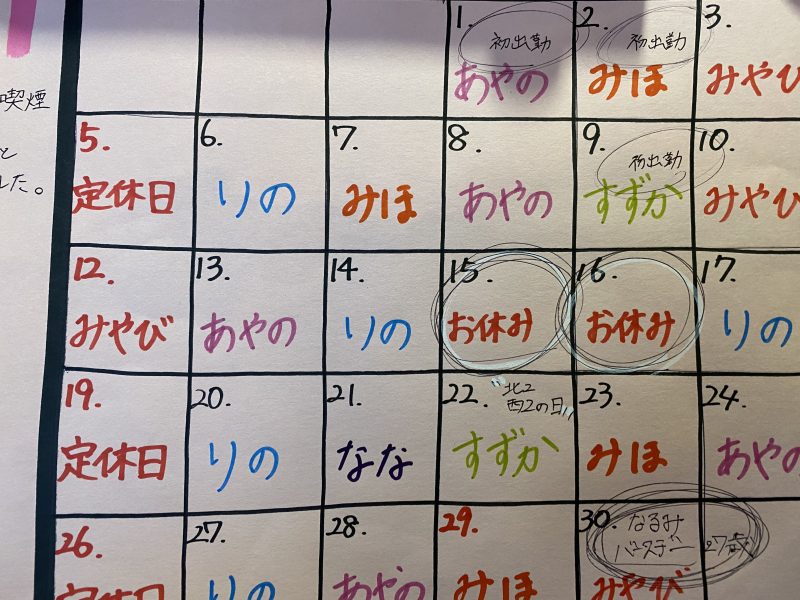 喫煙
と
した。
1.
初出勤
あやの
2.
初出勤
みほ
3.
みやび
5.
定休日
6.
りの
7.
みほ
8.
あやの
9.
初出勤
すずか
10.
みやび
12.
みやび
13.
あやの
14.
りの
15.
お休み
16.
お休み
17.
りの
19.
定休日
20.
りの
21.
なな
22.
"北2
西2の日"
すずか
23.
みほ
24.
あやの
26.
定休日
27.
りの
28.
あやの
29.
みほ
30.
なるみ
バースデー 27歳
みやび